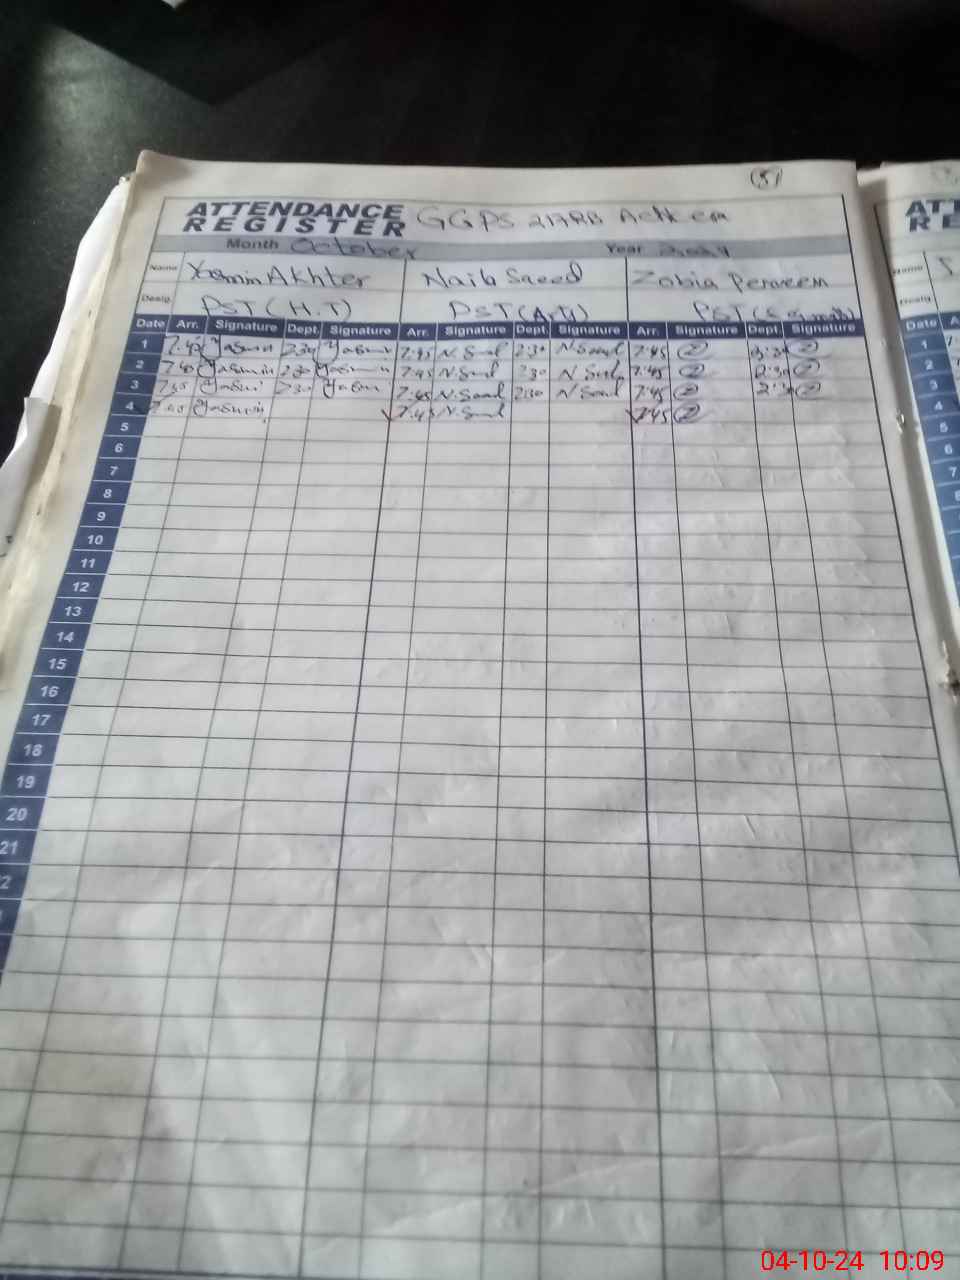 5
ATTENDANCE
REGISTER GGPS 217RB
Month October Year 2024
Name Yasmin Akhter Naila Saeed Zobia Perveen
Desig. PST (H.T) PST (Arts) PST (
Date Arr. Signature Dept. Signature Arr. Signature Dept. Signature Arr. Signature Dept. Signature
1 7.45 Yasmin 2.30 Yasmin 7.45 N.Saeed 2:30 N Saeed 7:45 2:30
2 7.45 Yasmin 2.30 Yasmin 7.45 N.Saeed 2:30 N Saeed 7:45 2:30
3 Yasmin 2.30 Yasmin 7.45 N.Saeed 2:30 N Saeed 7:45 2:30
4 7.45 Yasmin 7.45 N.Saeed 7:45
5
6
7
8
9
10
11
12
13
14
15
16
17
18
19
20
21
2
ATT
RE
Name
Desig.
Date A
1
2
3
4
5
6
7
04-10-24 10:09